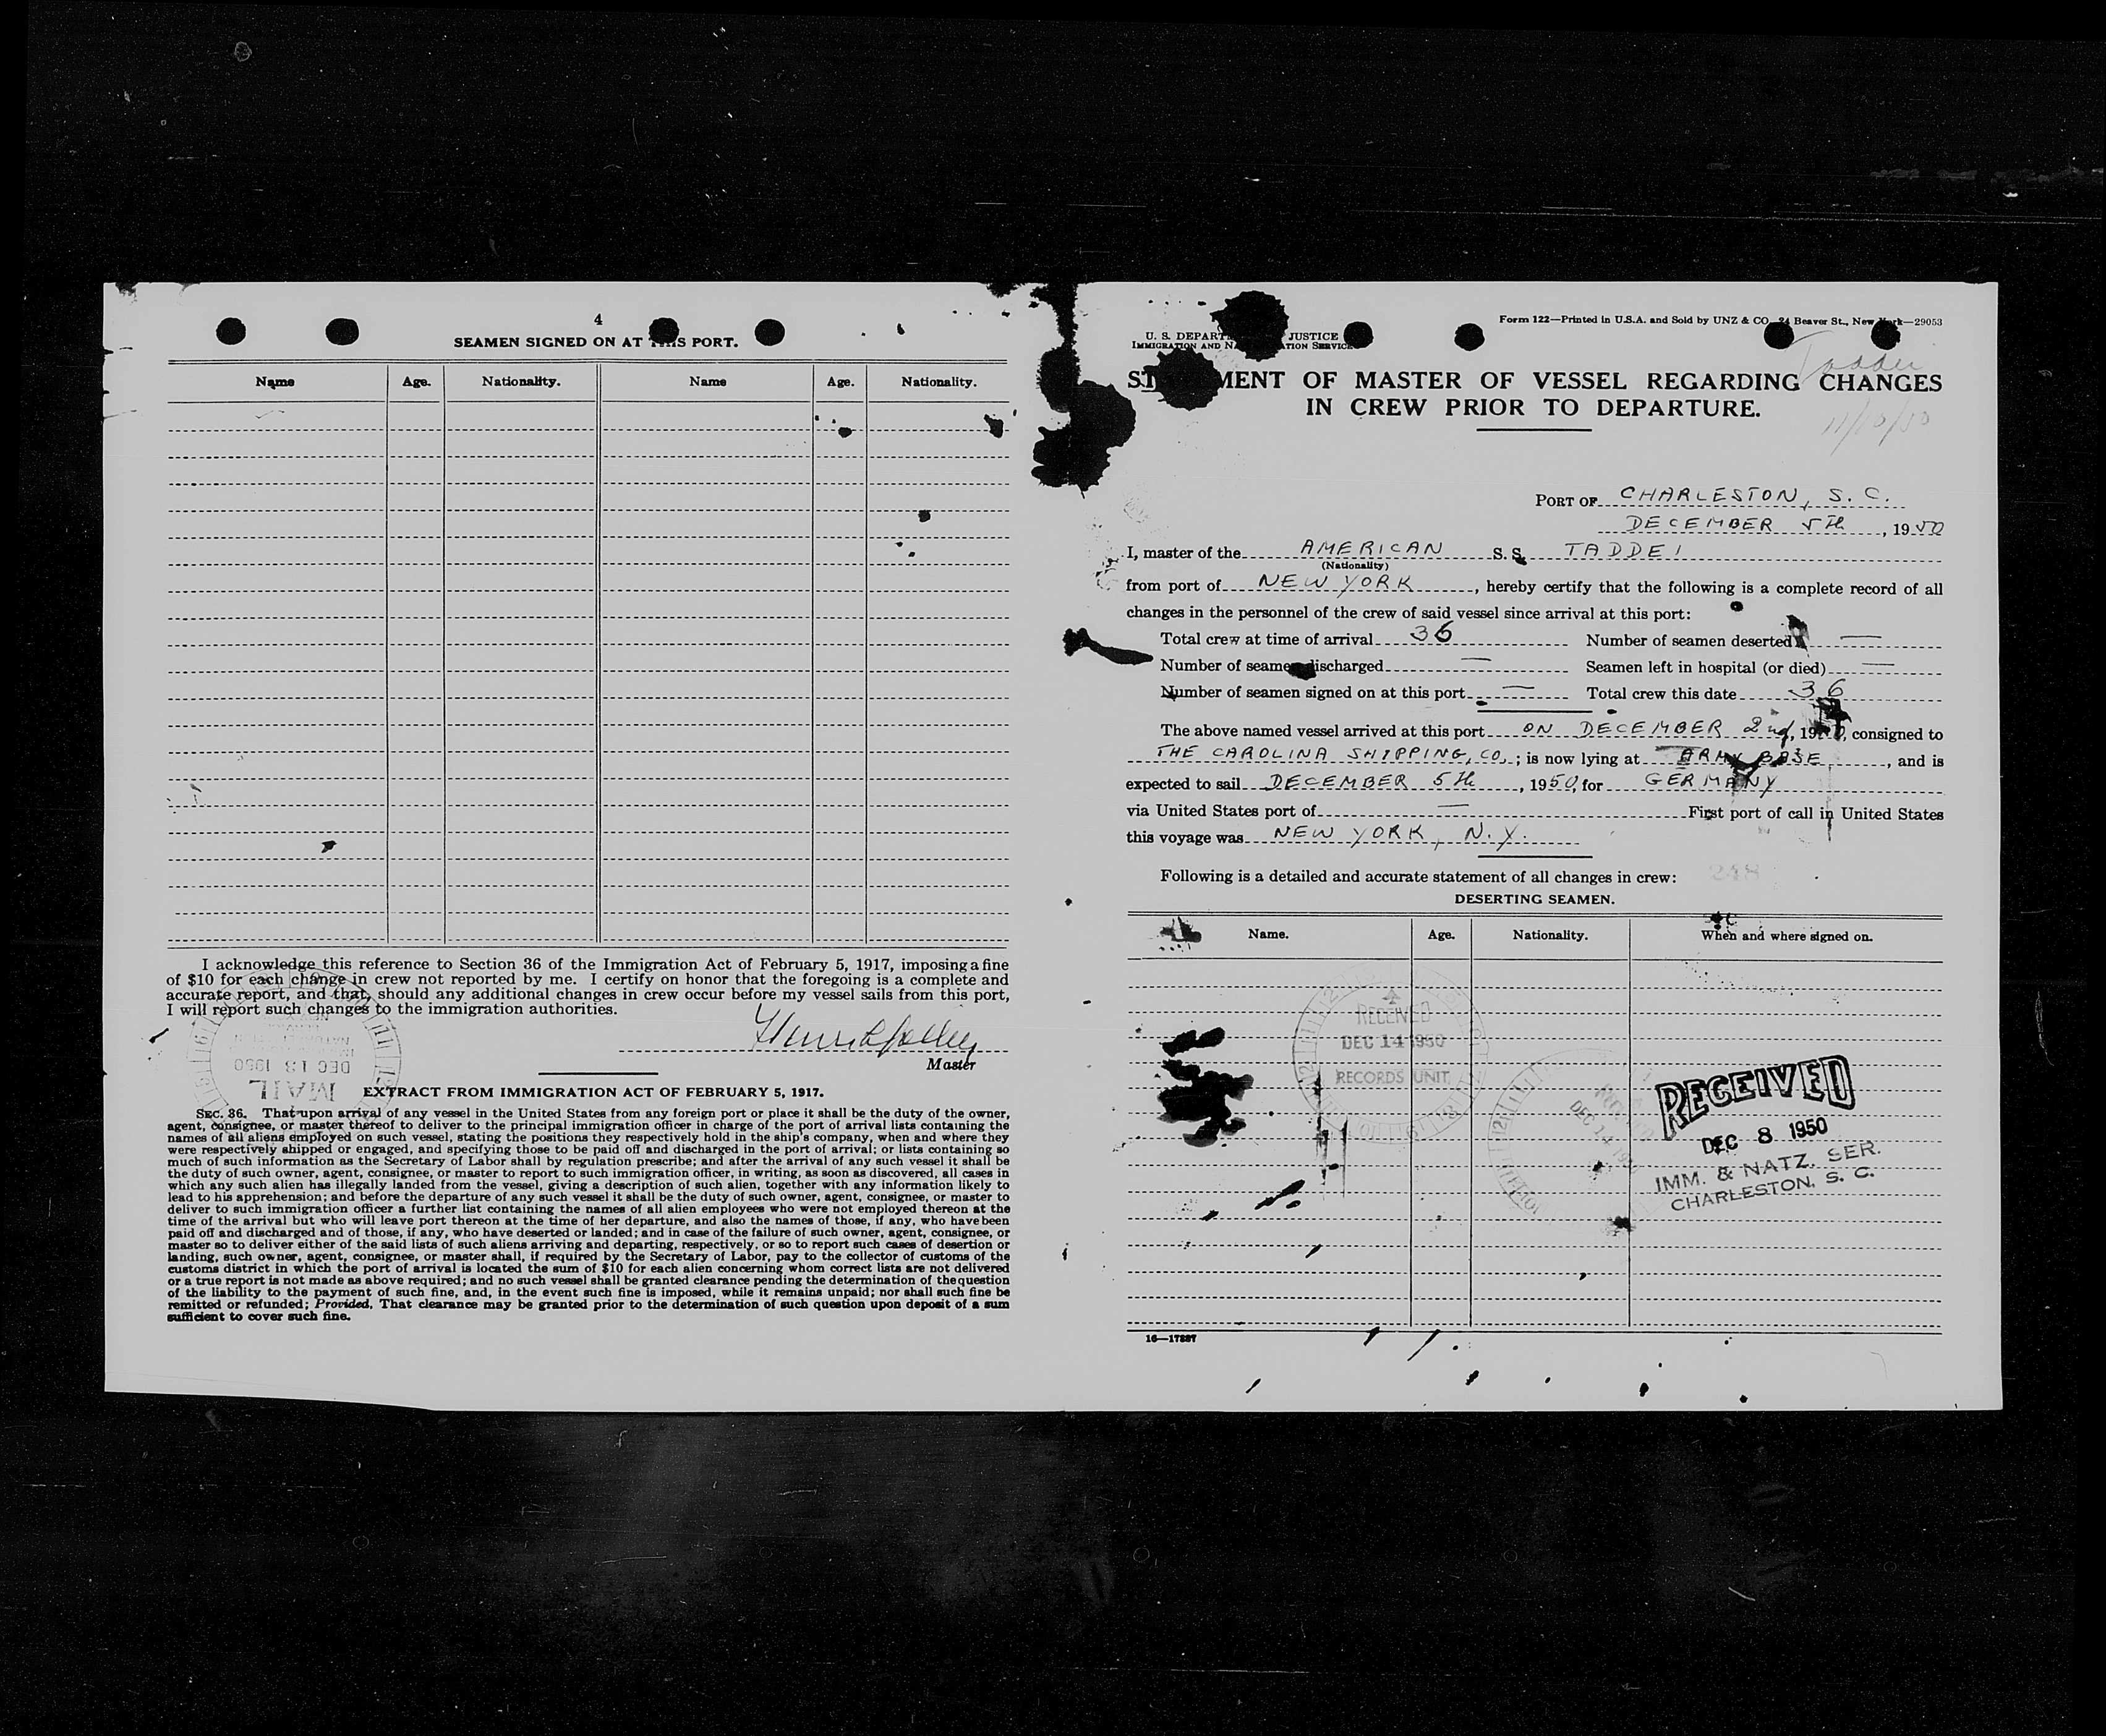 4
SEAMEN SIGNED ON AT THIS PORT.
Name Age. Nationality. Name Age. Nationality.
I acknowledge this reference to Section 36 of the Immigration Act of February 5, 1917, imposing a fine
of $10 for each change in crew not reported by me. I certify on honor that the foregoing is a complete and
accurate report, and that, should any additional changes in crew occur before my vessel sails from this port,
I will report such changes to the immigration authorities.
Master
MAIL
DEC 13 1950
EXTRACT FROM IMMIGRATION ACT OF FEBRUARY 5, 1917.
SEC. 36. That upon arrival of any vessel in the United States from any foreign port or place it shall be the duty of the owner,
agent, consignee, or master thereof to deliver to the principal immigration officer in charge of the port of arrival lists containing the
names of all aliens employed on such vessel, stating the positions they respectively hold in the ship's company, when and where they
were respectively shipped or engaged, and specifying those to be paid off and discharged in the port of arrival; or lists containing so
much of such information as the Secretary of Labor shall by regulation prescribe; and after the arrival of any such vessel it shall be
the duty of such owner, agent, consignee, or master to report to such immigration officer, in writing, as soon as discovered, all cases in
which any such alien has illegally landed from the vessel, giving a description of such alien, together with any information likely to
lead to his apprehension; and before the departure of any such vessel it shall be the duty of such owner, agent, consignee, or master to
deliver to such immigration officer a further list containing the names of all alien employees who were not employed thereon at the
time of the arrival but who will leave port thereon at the time of her departure, and also the names of those, if any, who have been
paid off and discharged and of those, if any, who have deserted or landed; and in case of the failure of such owner, agent, consignee, or
master so to deliver either of the said lists of such aliens arriving and departing, respectively, or so to report such cases of desertion or
landing, such owner, agent, consignee, or master shall, if required by the Secretary of Labor, pay to the collector of customs of the
customs district in which the port of arrival is located the sum of $10 for each alien concerning whom correct lists are not delivered
or a true report is not made as above required; and no such vessel shall be granted clearance pending the determination of the question
of the liability to the payment of such fine, and, in the event such fine is imposed, while it remains unpaid; nor shall such fine be
remitted or refunded; Provided, That clearance may be granted prior to the determination of such question upon deposit of a sum
sufficient to cover such fine.
Form 122—Printed in U.S.A. and Sold by UNZ & CO. 24 Beaver St., New York—29053
U. S. DEPARTMENT OF JUSTICE
IMMIGRATION AND NATURALIZATION SERVICE
Taddei
STATEMENT OF MASTER OF VESSEL REGARDING CHANGES
IN CREW PRIOR TO DEPARTURE.
11/10/50
PORT OF CHARLESTON, S. C.
DECEMBER 5th, 1950
I, master of the AMERICAN S. S. TADDEI
(Nationality)
from port of NEW YORK, hereby certify that the following is a complete record of all
changes in the personnel of the crew of said vessel since arrival at this port:
Total crew at time of arrival 36 Number of seamen deserted —
Number of seamen discharged — Seamen left in hospital (or died) —
Number of seamen signed on at this port — Total crew this date 36
The above named vessel arrived at this port ON DECEMBER 2nd, 1950, consigned to
THE CAROLINA SHIPPING, CO.; is now lying at ARMY BASE, and is
expected to sail DECEMBER 5th, 1950, for GERMANY
via United States port of — First port of call in United States
this voyage was NEW YORK, N. Y.
Following is a detailed and accurate statement of all changes in crew: 248
DESERTING SEAMEN.
Name. Age. Nationality. When and where signed on.
RECEIVED
DEC 14 1950
RECORDS UNIT
DEC 14
RECEIVED
DEC 8 1950
IMM. & NATZ. SER.
CHARLESTON, S. C.
16—17887